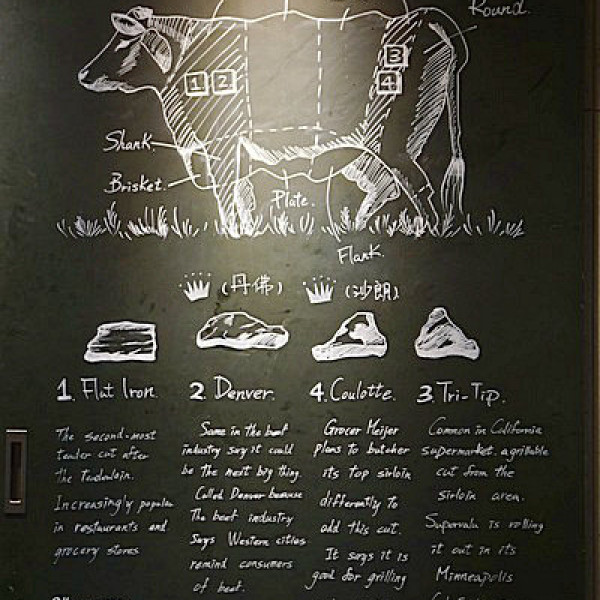 Round.
3
1 2
4
Shank
Brisket.
Plate.
Flank.
(丹佛) (沙朗)
1. Flat Iron. 2. Denver. 4. Coulotte. 3. Tri-Tip.
The second-most
tender cut after
the tenderloin.
Increasingly popular
in restaurants and
grocery stores
Some in the beef
industry say it could
be the next big thing.
Called Denver because
The beef industry
Says Western cities
remind consumers
of beef.
Grocer Meijer
plans to butcher
its top sirloin
differently to
add this cut.
It says it is
good for grilling
Common in California
supermarket. a grillable
cut from the
sirloin area.
Supervalu is rolling
it out in its
Minneapolis